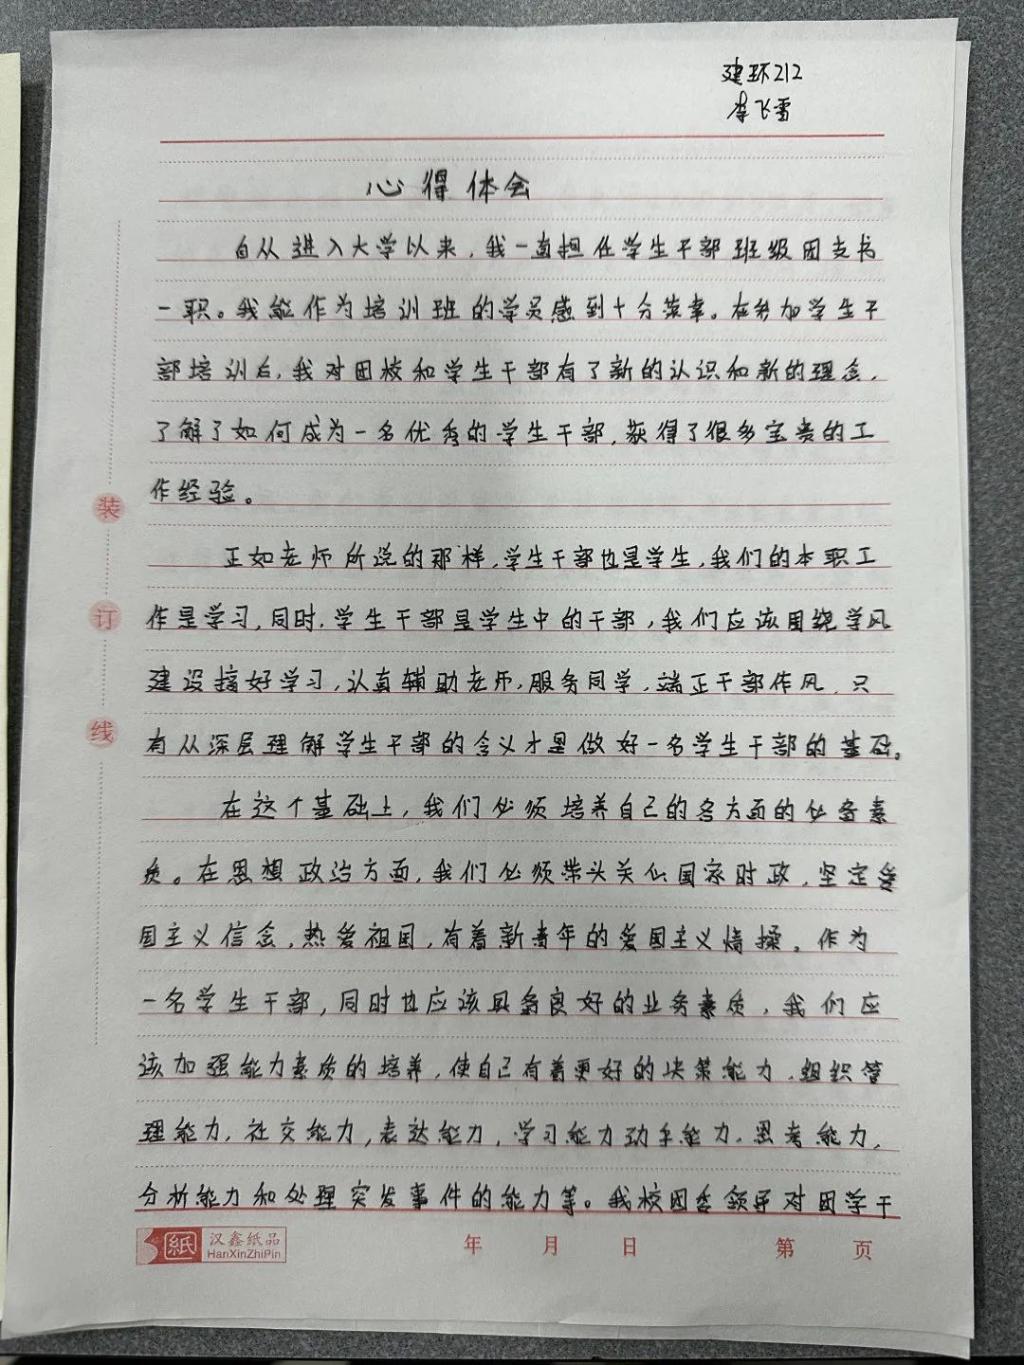 建环212
李飞雪
心得体会
自从进入大学以来，我一直担任学生干部班级团支书
一职。我能作为培训班的学员感到十分荣幸。在参加学生干
部培训后，我对团校和学生干部有了新的认识和新的理念，
了解了如何成为一名优秀的学生干部，获得了很多宝贵的工
作经验。
正如老师所说的那样，学生干部也是学生，我们的本职工
作是学习，同时，学生干部是学生中的干部，我们应该围绕学风
建设搞好学习，认真辅助老师，服务同学，端正干部作风，只
有从深层理解学生干部的含义才是做好一名学生干部的基础。
在这个基础上，我们必须培养自己的各方面的必备素
质。在思想政治方面，我们必须带头关心国家时政，坚定爱
国主义信念，热爱祖国，有着新青年的爱国主义情操。作为
一名学生干部，同时也应该具备良好的业务素质，我们应
该加强能力素质的培养，使自己有着更好的决策能力，组织管
理能力，社交能力，表达能力，学习能力动手能力，思考能力，
分析能力和处理突发事件的能力等。我校团委领导对团学干
装
订
线
纸 汉鑫纸品
HanXinZhiPin
年 月 日 第 页